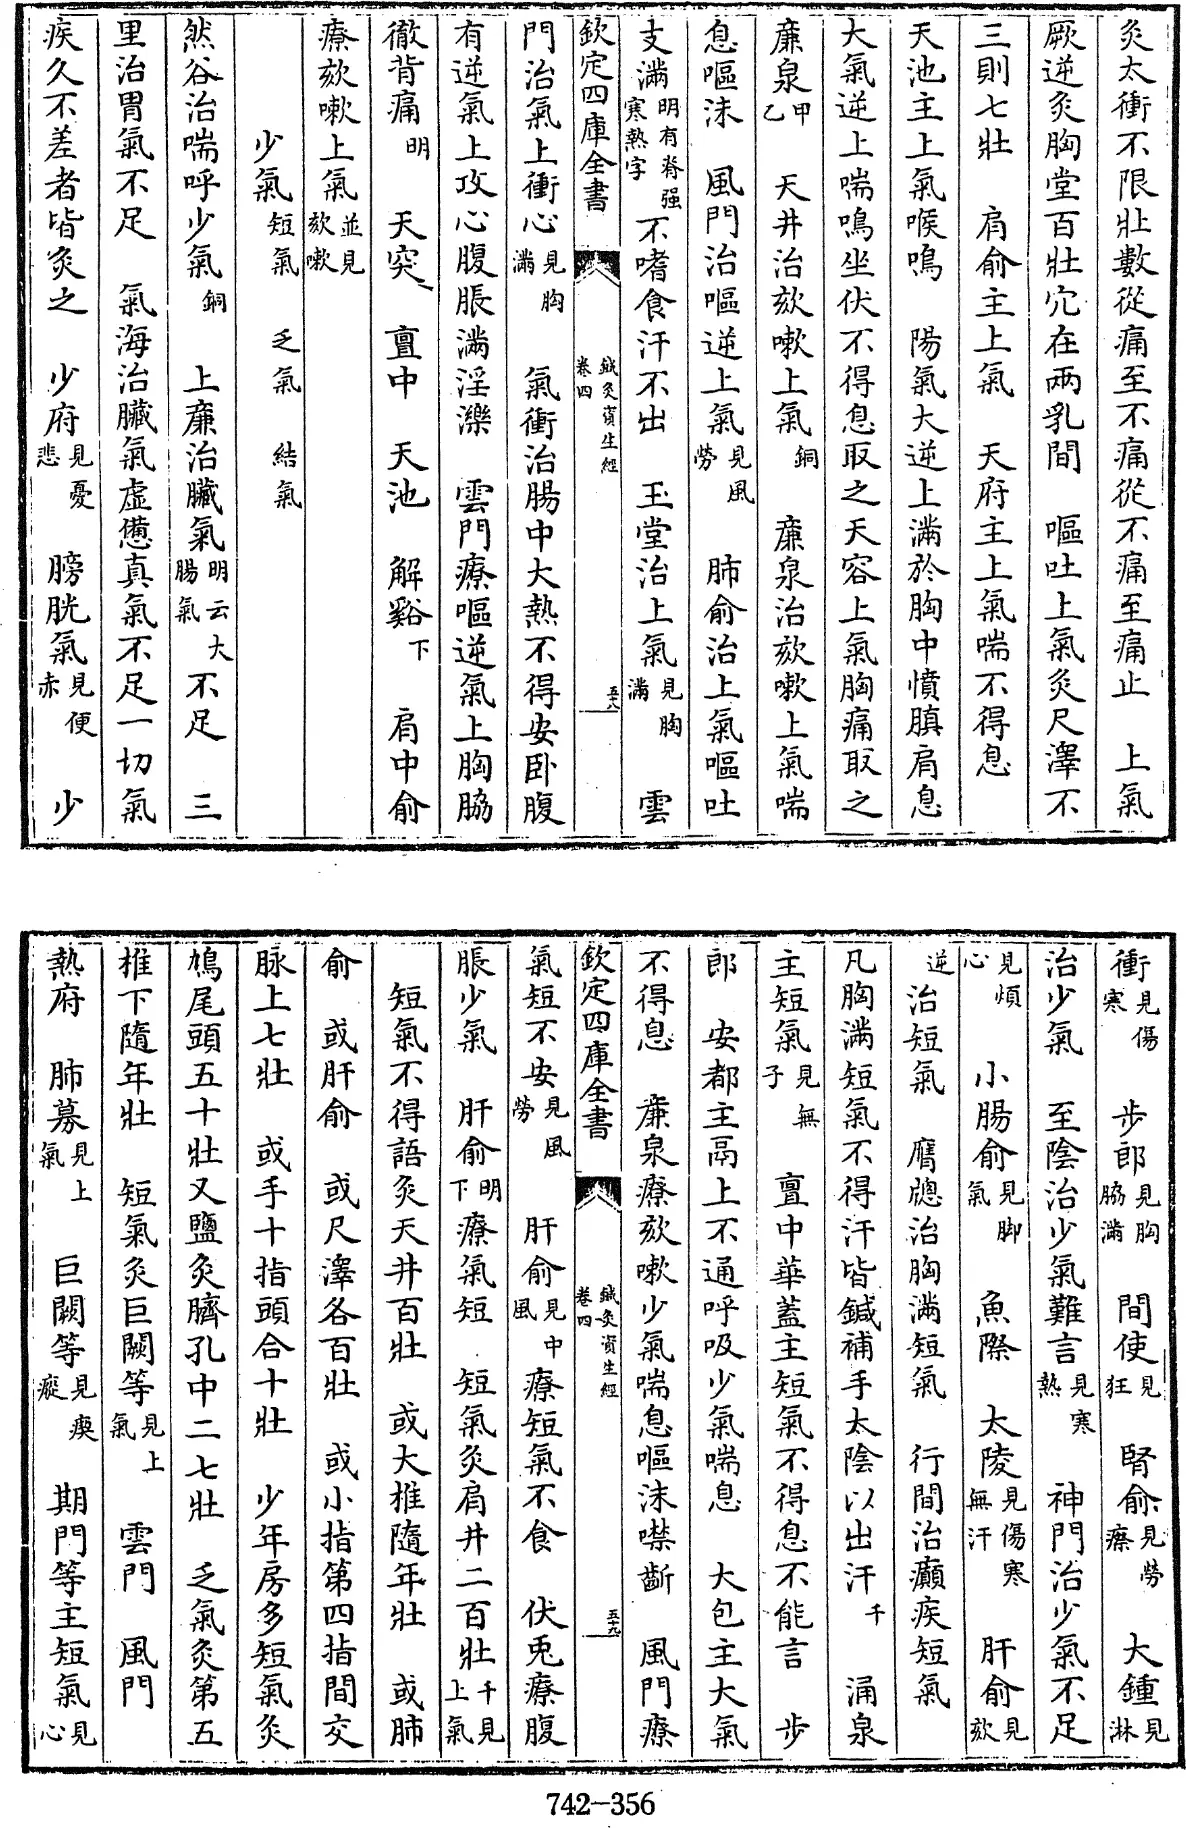 灸太衝不限壯數從痛至不痛從不痛至痛止　上氣
厥逆灸胸堂百壯穴在兩乳間　嘔吐上氣灸尺澤不
三則七壯　肩俞主上氣　天府主上氣喘不得息
天池主上氣喉鳴　陽氣大逆上滿於胸中憤䐜肩息
大氣逆上喘鳴坐伏不得息取之天容上氣胸痛取之
廉泉甲乙　天井治欬嗽上氣銅　廉泉治欬嗽上氣喘
息嘔沫　風門治嘔逆上氣見風勞　肺俞治上氣嘔吐
支滿明有脊强寒熱字不嗜食汗不出　玉堂治上氣見胸滿　雲
欽定四庫全書　鍼灸資生經卷四　五十八
門治氣上衝心見胸滿　氣衝治腸中大熱不得安卧腹
有逆氣上攻心腹脹滿淫濼　雲門療嘔逆氣上胸脇
徹背痛明　天突　亶中　天池　解谿下　肩中俞
療欬嗽上氣並見欬嗽
少氣短氣　乏氣　結氣
然谷治喘呼少氣銅　上廉治臟氣明云大腸氣不足　三
里治胃氣不足　氣海治臟氣虛憊真氣不足一切氣
疾久不差者皆灸之　少府見憂悲　膀胱氣見便赤　少
衝見傷寒　步郎見胸脇滿　間使見狂　腎俞見勞瘵　大鍾見淋
治少氣　至陰治少氣難言見寒熱　神門治少氣不足
見煩心　小腸俞見脚氣　魚際　太陵見傷寒無汗　肝俞見欬
逆治短氣　膺牕治胸滿短氣　行間治癲疾短氣
凡胸滿短氣不得汗皆鍼補手太陰以出汗千　涌泉
主短氣見無子　亶中華蓋主短氣不得息不能言　步
郎　安都主鬲上不通呼吸少氣喘息　大包主大氣
不得息　廉泉療欬嗽少氣喘息嘔沫噤齗　風門療
欽定四庫全書　鍼灸資生經卷四　五十九
氣短不安見風勞　肝俞見中風療短氣不食　伏兎療腹
脹少氣　肝俞明下療氣短　短氣灸肩井二百壯千見上氣
短氣不得語灸天井百壯　或大椎隨年壯　或肺
俞　或肝俞　或尺澤各百壯　或小指第四指間交
脉上七壯　或手十指頭合十壯　少年房多短氣灸
鳩尾頭五十壯又鹽灸臍孔中二七壯　乏氣灸第五
椎下隨年壯　短氣灸巨闕等見上氣　雲門　風門
熱府　肺募見上氣　巨闕等見瘈瘲　期門等主短氣見心
742-356